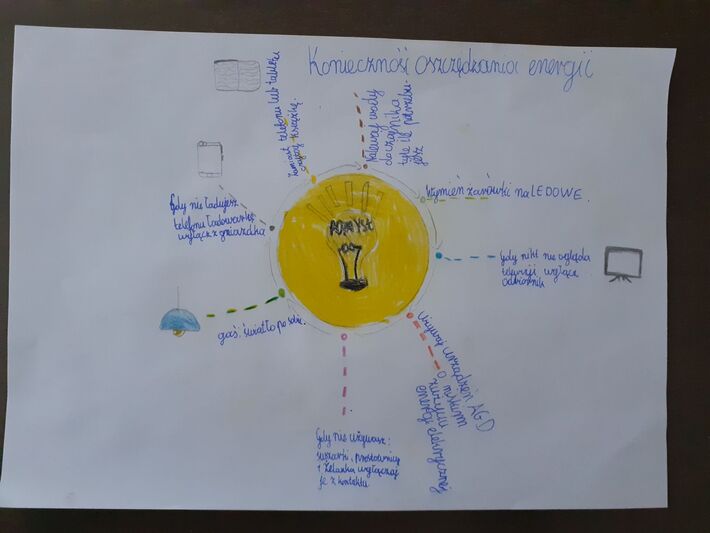 Konieczność oszczędzania energii
Zamiast telefonu lub tabletu
czytaj książkę.
Nalewaj wody
do czajnika
tyle ile potrzebu-
jesz
Wymień żarówki na LEDOWE.
Gdy nikt nie ogląda
telewizji wyłącz
odbiornik
Używaj urządzeń AGD
o niskim
zużyciu
energii elektrycznej
Gdy nie używasz:
suszarki, prostownicy
i żelazka wyłączaj
je z kontaktu.
gaś światło po sobie.
Gdy nie ładujesz
telefonu ładowarkę
wyłącz z gniazdka
POMYSŁ